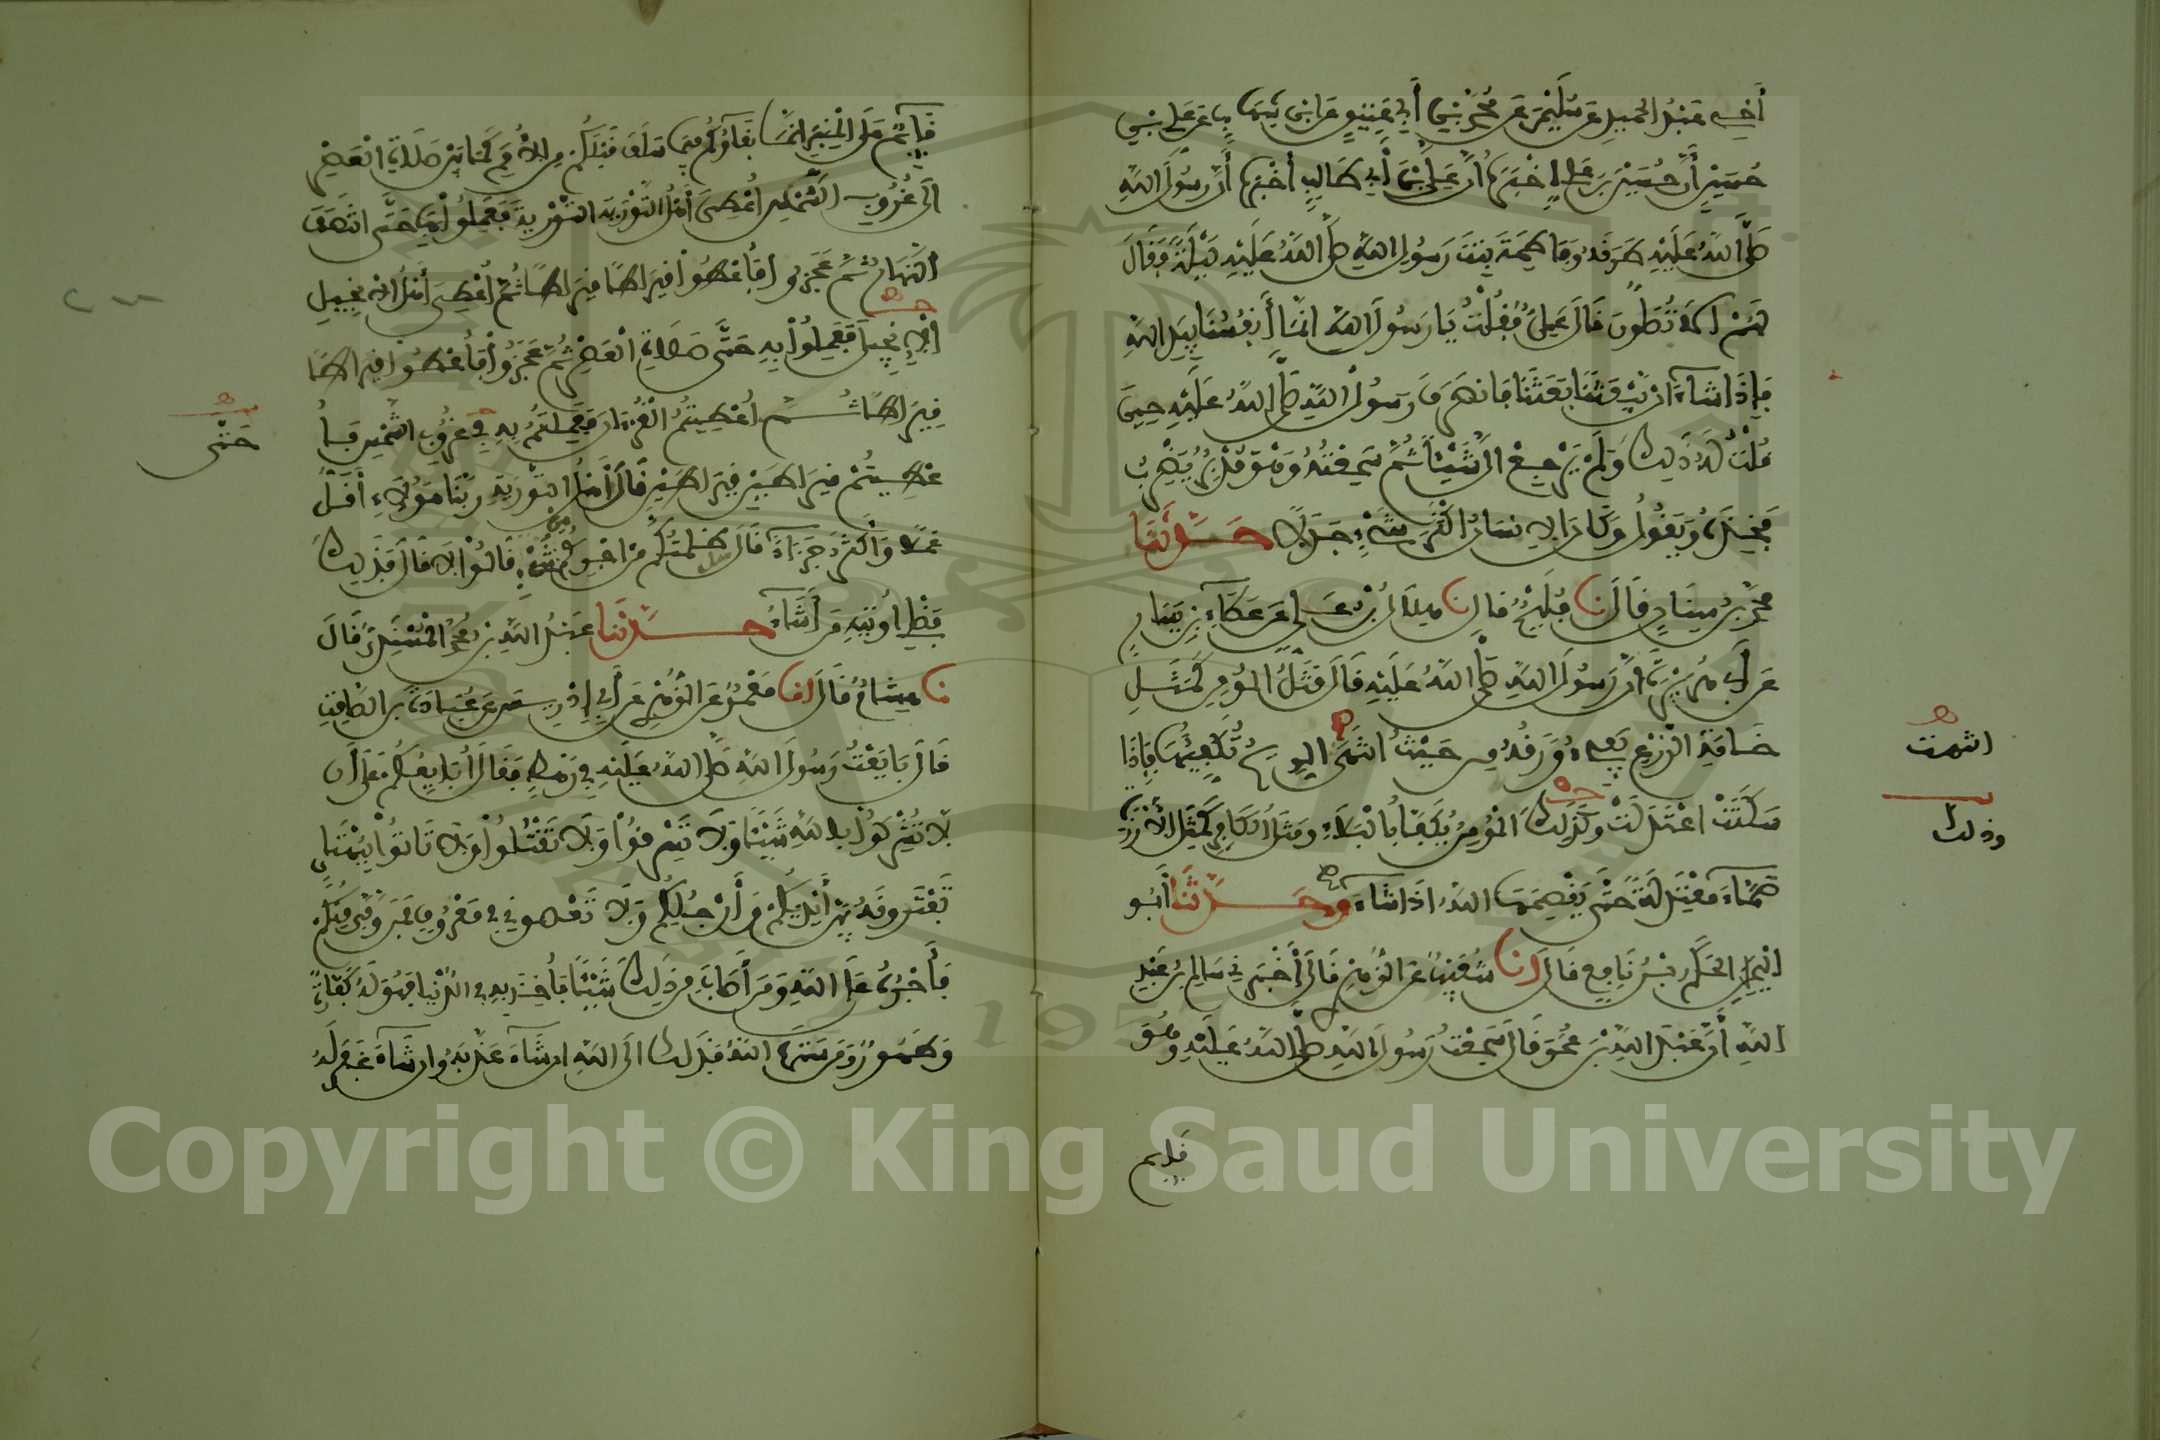 أخي عبد الحميد عن سليمن عن محمد بن أبي عتيق عن ابن شهاب عن علي بن
حسين أن حسين بن علي اخبره أن علي بن أبي طالب أخبره أن رسول الله
صلى الله عليه طرقه وفاطمة بنت رسول الله صلى الله عليه ليلة فقال
لهم الا تصلون قال علي فقلت يا رسول الله انما أنفسنا بيد الله
فإذا شاء ان يبعثنا بعثنا فانصرف رسول الله صلى الله عليه حين
قلت له ذلك ولم يرجع الي شيئا ثم سمعته وهو مدبر يضرب
فخذه ويقول وكان الانسان اكثر شيء جدلا حدثنا
محمد بن سنان قال نا فليح قال نا هلال بن علي عن عطاء بن يسار
عن أبي هريرة أن رسول الله صلى الله عليه قال مثل المؤمن كمثل
خامة الزرع يفيء ورقه من حيث انتهى الريح تكفيها فإذا
سكنت اعتدلت وكذلك المؤمن يكفأ بالبلاء ومثل الكافر كمثل الأرزة
صماء معتدلة حتى يقصمها الله اذا شاء وحدثنا أبو
اليمان الحكم بن نافع قال انا شعيب عن الزهري قال أخبرني سالم بن عبد
الله أن عبد الله بن عمر قال سمعت رسول الله صلى الله عليه وهو
قايم
انتهت
وذلك
قايم على المنبر انما بقاؤكم فيما سلف قبلكم من الأمم كما بين صلاة العصر
الى غروب الشمس اعطي أهل التورية التورية فعملوا بها حتى انتصف
النهار ثم عجزوا فأعطوا قيراطا قيراطا ثم أعطي أهل الانجيل
الانجيل فعملوا به حتى صلاة العصر ثم عجزوا فأعطوا قيراطا
قيراطا ثم اعطيتم القرءان فعملتم به في غروب الشمس فأ
عطيتم قيراطين قيراطين قال أهل التورية ربنا هؤلاء أقل
عملا وأكثر جزاء قال هل ظلمتكم من اجركم من شيء قالوا لا قال فذلك
فضلي اوتيه من أشاء حدثنا عبد الله بن محمد المسندي قال
نا هشام قال انا معمر عن الزهري عن أبي إدريس عن عبادة بن الصامت
قال بايعت رسول الله صلى الله عليه في رهط فقال أبايعكم على أن
لا تشركوا بالله شيئا ولا تسرفوا ولا تقتلوا ولا تاتوا ببهتان
تفترونه بين أيديكم وأرجلكم ولا تعصوني في معروف فمن وفى منكم
فأجره على الله ومن أصاب من ذلك شيئا فأخذ به في الدنيا فهو له كفارة
وطهور ومن ستره الله فذلك الى الله ان شاء عذبه وان شاء غفر له
حتى